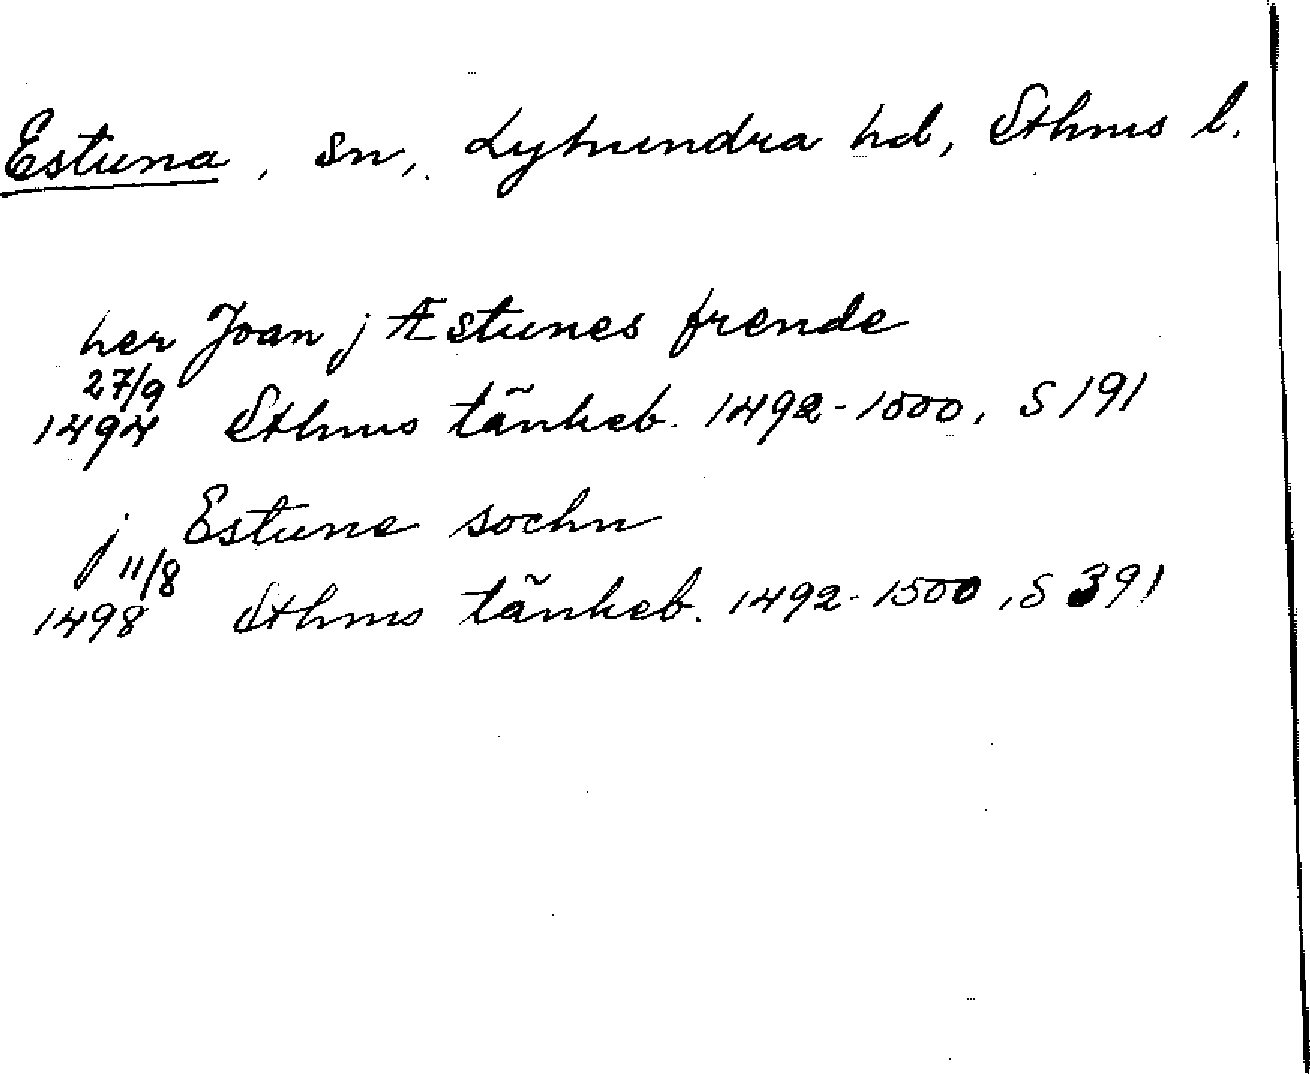 Estuna, sn, Lyhundra hd, Sthms l.
her Joan j Æstunes frende
27/9
1494 Sthms tänkeb. 1492-1500, S 191
j Estune sochn
11/8
1498 Sthms tänkeb. 1492-1500, S 391